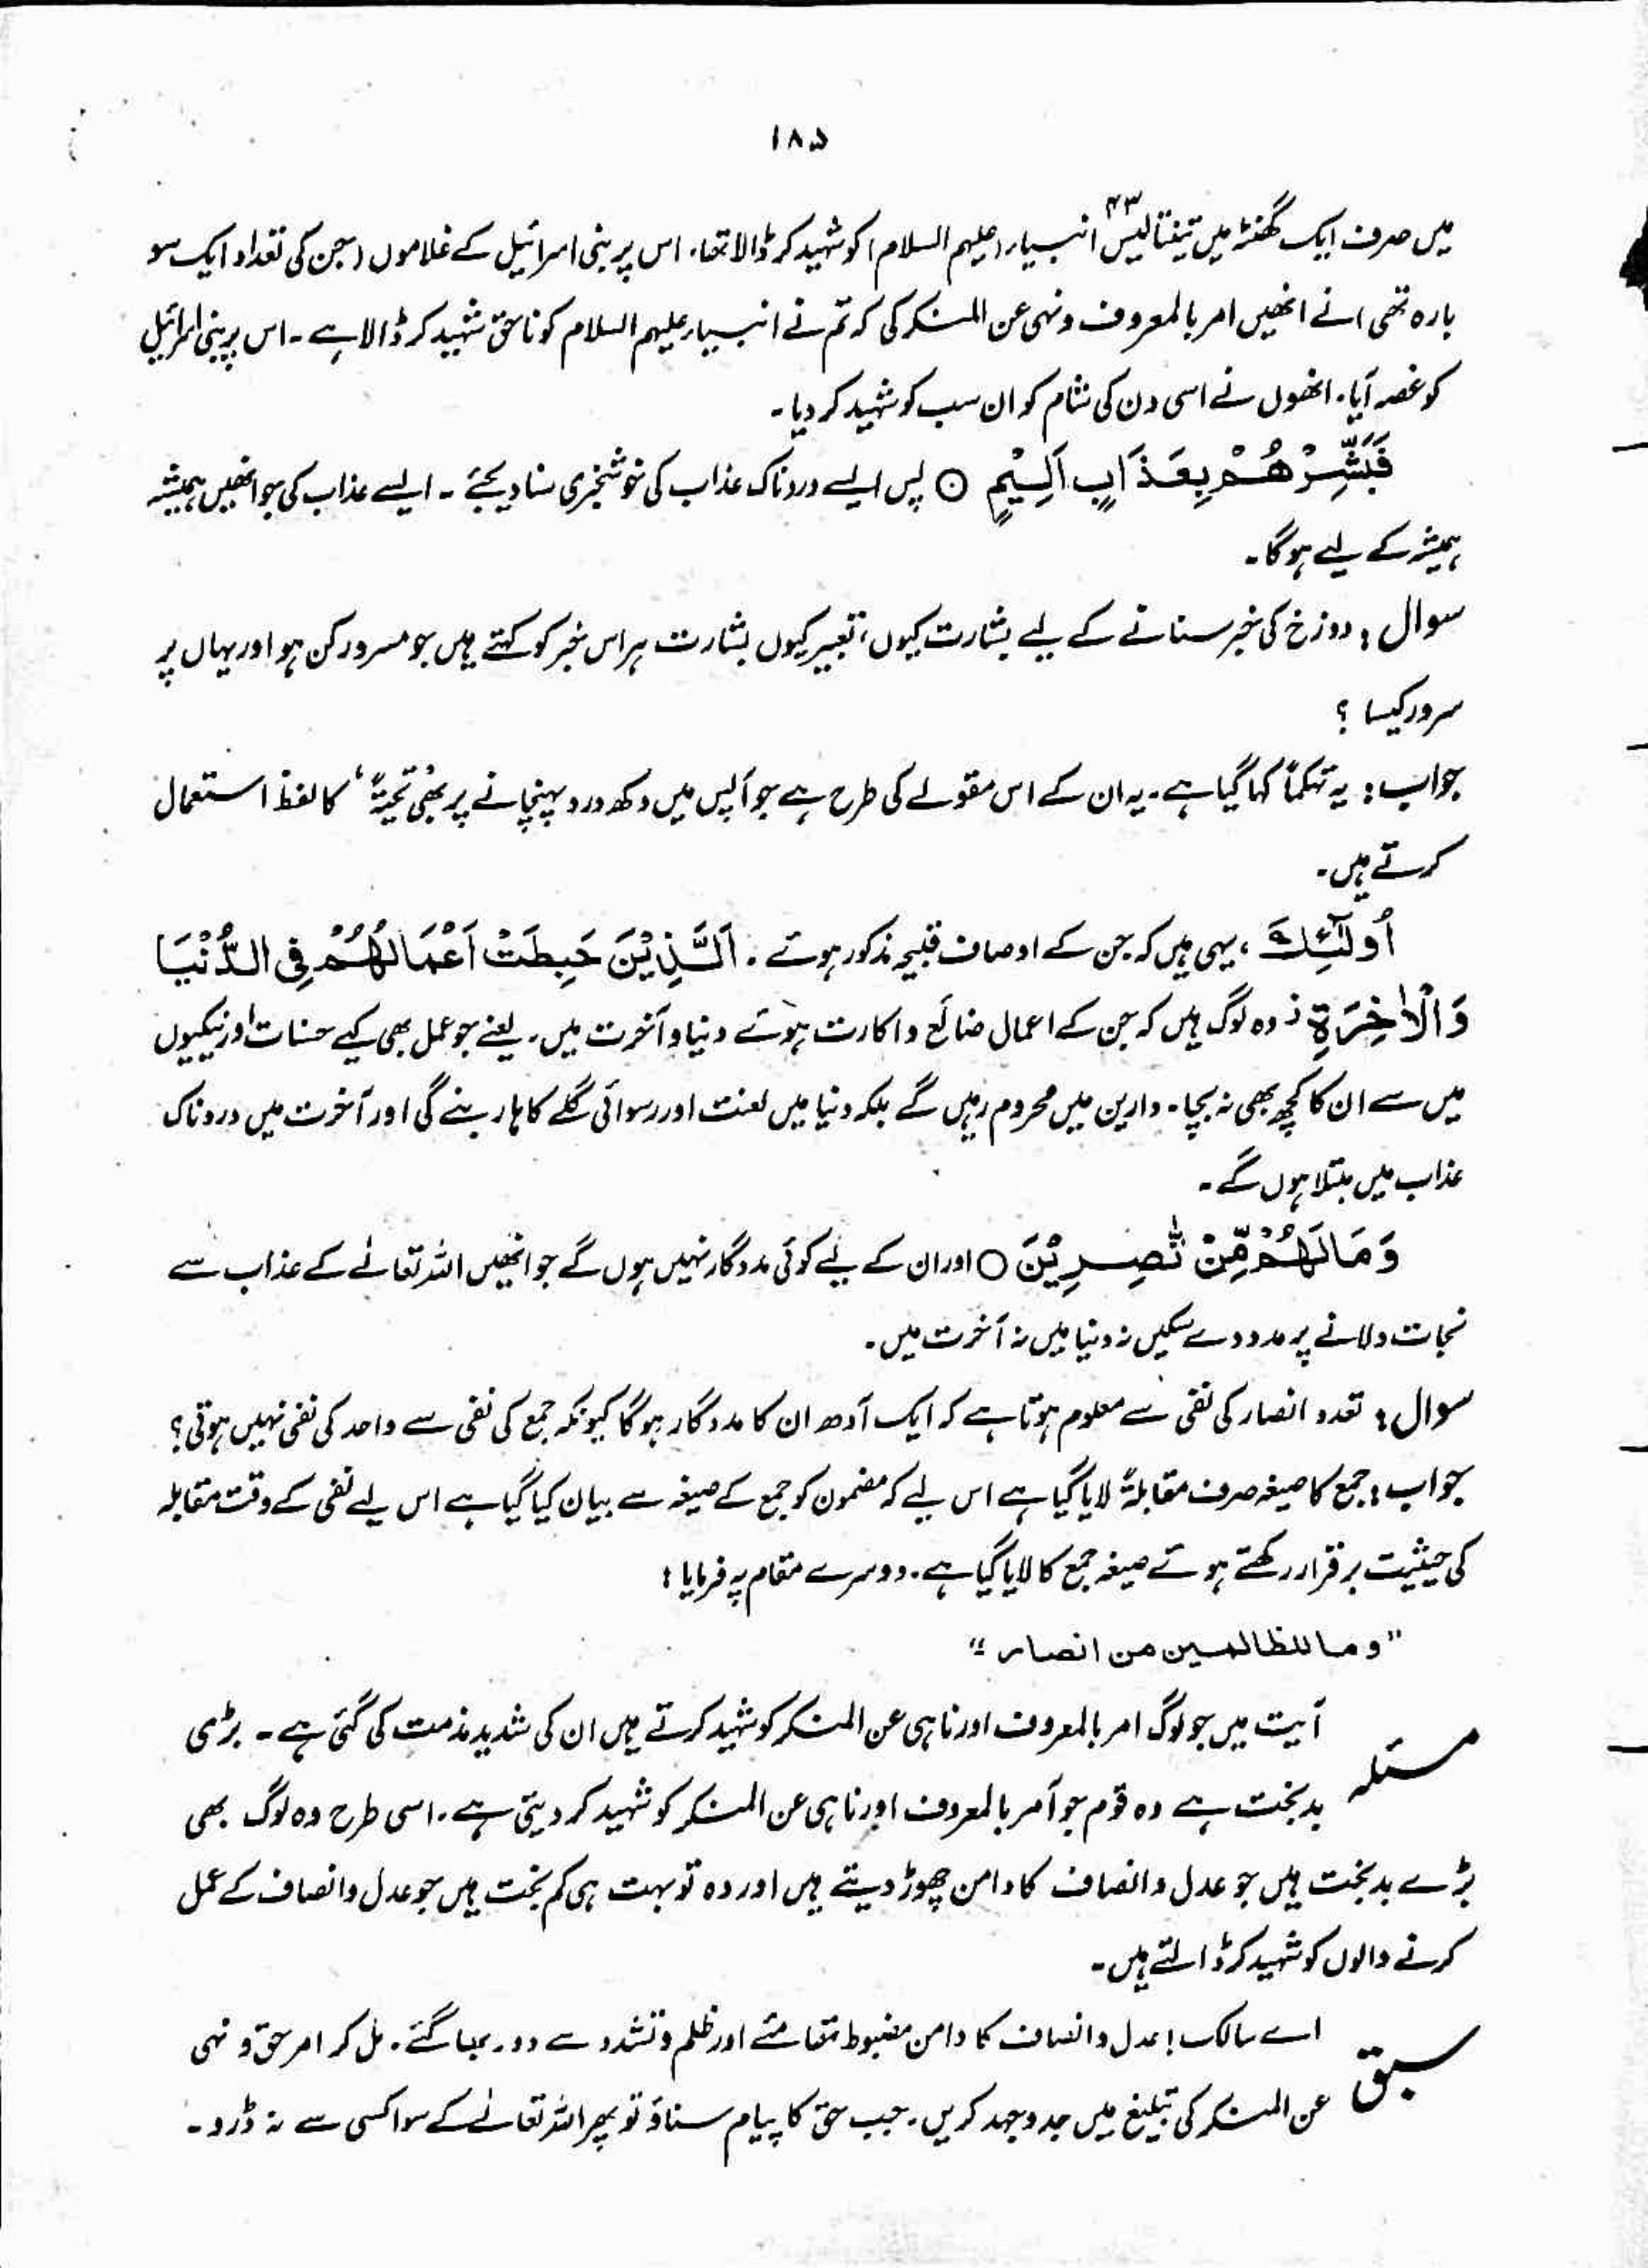 ۱۸۵
میں صرف ایک گھنٹہ میں تینتالیس ۴۳ انبیاء (علیہم السلام) کو شہید کر ڈالا تھا۔ اس پر بنی اسرائیل کے غلاموں (جن کی تعداد ایک سو
بارہ تھی) نے انھیں امر بالمعروف ونہی عن المنکر کی کہ تم نے انبیاء علیہم السلام کو ناحق شہید کر ڈالا ہے۔ اس پر بنی اسرائیل
کو غصہ آیا۔ انھوں نے اسی دن کی شام کو ان سب کو شہید کر دیا۔
فَبَشِّرْهُمْ بِعَذَابٍ اَلِيْمٍ ○ پس ایسے دردناک عذاب کی خوشخبری سنا دیجئے۔ ایسے عذاب کی جو انھیں ہمیشہ
ہمیشہ کے لیے ہوگا۔
سوال : دوزخ کی خبر سنانے کے لیے بشارت کیوں، تعبیر کیوں بشارت ہر اس خبر کو کہتے ہیں جو مسرور کن ہو اور یہاں پر
سرور کیسا ؟
جواب : یہ تہکماً کہا گیا ہے۔ یہ ان کے اس مقولے کی طرح ہے جو آپس میں دکھ درد پہنچانے پر بھی تحیۃً، کا لفظ استعمال
کرتے ہیں۔
اُولٰٓئِكَ ، یہی ہیں کہ جن کے اوصاف قبیحہ مذکور ہوئے۔ اَلَّذِيْنَ حَبِطَتْ اَعْمَالُهُمْ فِى الدُّنْيَا
وَالْاٰخِرَةِ ز وہ لوگ ہیں کہ جن کے اعمال ضائع و اکارت ہوئے دنیا و آخرت میں۔ یعنے جو عمل بھی کیے حسنات اور نیکیوں
میں سے ان کا کچھ بھی نہ بچا۔ دارین میں محروم رہیں گے بلکہ دنیا میں لعنت اور رسوائی گلے کا ہار بنے گی اور آخرت میں دردناک
عذاب میں مبتلا ہوں گے۔
وَمَالَهُمْ مِّنْ نّٰصِرِيْنَ ○ اور ان کے لیے کوئی مددگار نہیں ہوں گے جو انھیں اللہ تعالٰے کے عذاب سے
نجات دلانے پر مدد دے سکیں نہ دنیا میں نہ آخرت میں۔
سوال : تعدد انصار کی نفی سے معلوم ہوتا ہے کہ ایک آدھ ان کا مددگار ہوگا کیونکہ جمع کی نفی سے واحد کی نفی نہیں ہوتی؟
جواب : جمع کا صیغہ صرف مقابلۃً لایا گیا ہے اس لیے کہ مضمون کو جمع کے صیغہ سے بیان کیا گیا ہے اس لیے نفی کے وقت مقابلہ
کی حیثیت برقرار رکھتے ہوئے صیغہ جمع کا لایا گیا ہے۔ دوسرے مقام پہ فرمایا :
"وما للظالمین من انصار"
مسئلہ آیت میں جو لوگ امر بالمعروف اور ناہی عن المنکر کو شہید کرتے ہیں ان کی شدید مذمت کی گئی ہے۔ بڑی
بدبخت ہے وہ قوم جو آمر بالمعروف اور ناہی عن المنکر کو شہید کر دیتی ہے۔ اسی طرح وہ لوگ بھی
بڑے بدبخت ہیں جو عدل و انصاف کا دامن چھوڑ دیتے ہیں اور وہ تو بہت ہی کم بخت ہیں جو عدل و انصاف کے عمل
کرنے والوں کو شہید کر ڈالتے ہیں۔
سبق اے سالک! عدل و انصاف کا دامن مضبوط تھامئے اور ظلم و تشدد سے دور بھاگئے۔ مل کر امر حق و نہی
عن المنکر کی تبلیغ میں جدوجہد کریں۔ جب حق کا پیام سناؤ تو پھر اللہ تعالٰے کے سوا کسی سے نہ ڈرو۔